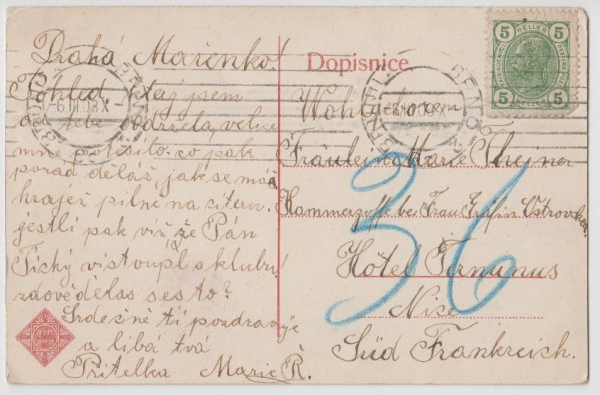 Drahá Mařenko!
Pohled který jsem
od tebe obdržela velice
mne potěšilo. co pak
pořád děláš jak se máš
hraješ pilně na citeru.
jestli pak víš že Pán
Tichý vistoupl s klubu
zdověděla's ses to?
Srdečně tě pozdravuje
a líbá tvá
Přítelka Marie R.
Dopisnice
5 HELLER 5
5 5
BRNO
BRÜNN
Wohlgeboren
Fräulein Marie Theiner
Kammerzofe be. Frau Gräfin Ostrovska
Hôtel Terminus
Nice
Süd Frankreich.
36